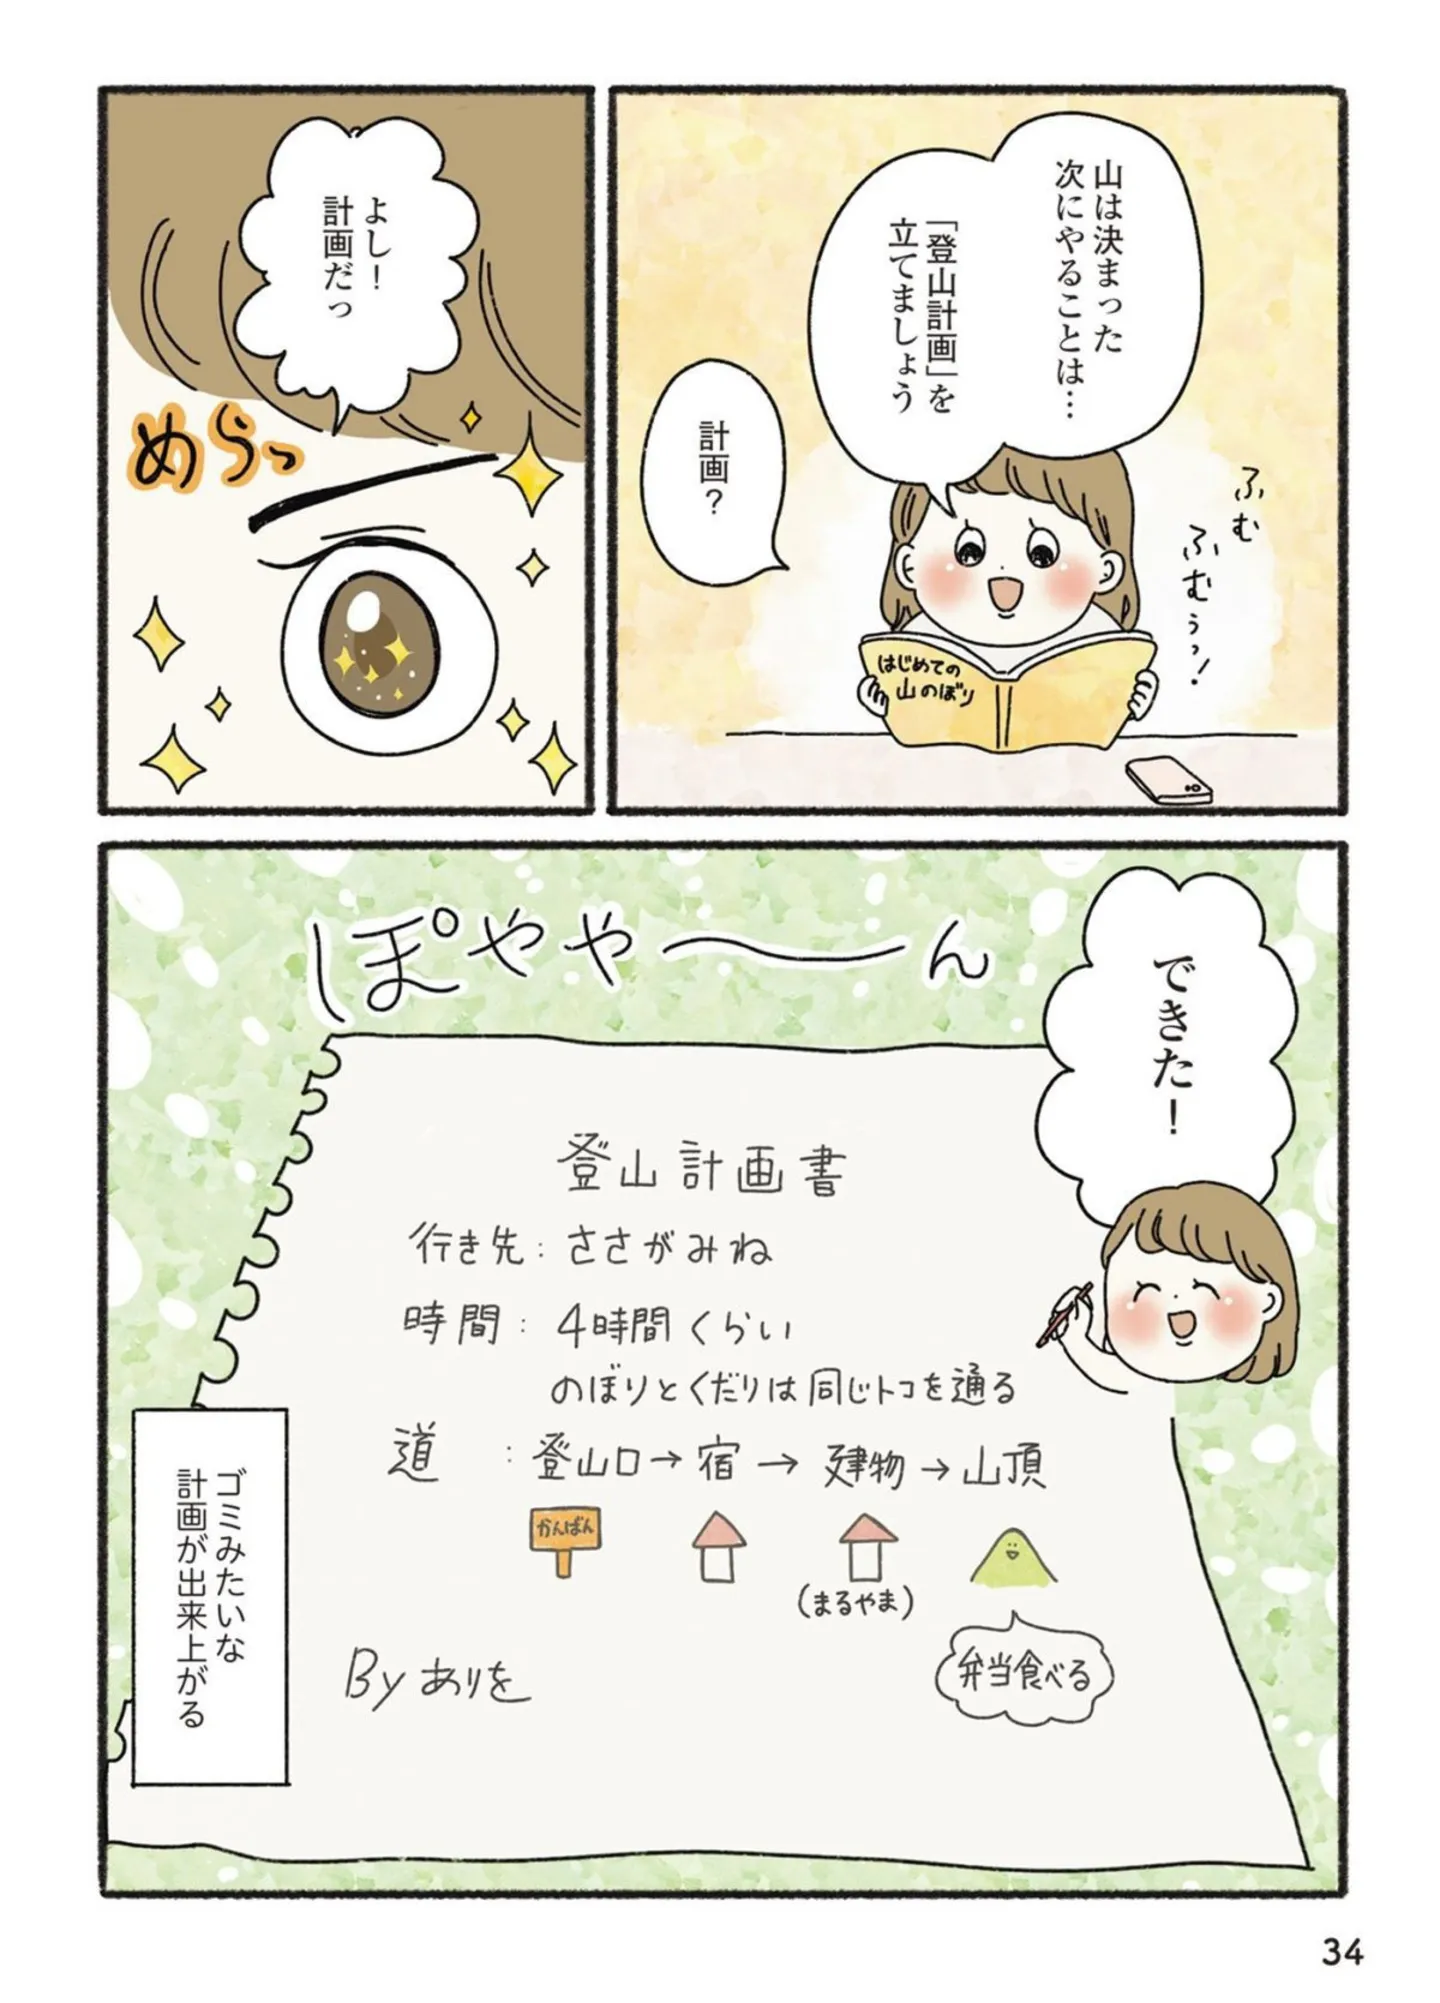 山は決まった
次にやることは…
「登山計画」を
立てましょう
計画？
ふむ
ふむぅっ！
はじめての
山のぼり
よし！
計画だっ
めらっ
できた！
ぽやや〜ん
登山計画書
行き先：ささがみね
時間：4時間くらい
のぼりとくだりは同じトコを通る
道：登山口→宿→建物→山頂
かんばん
(まるやま)
弁当食べる
By ありを
ゴミみたいな
計画が出来上がる
34